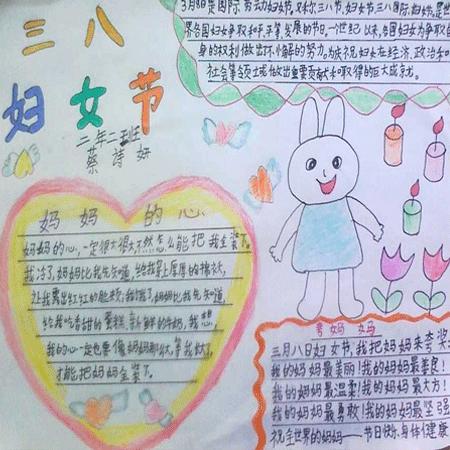 三八
妇女节
二年二班
蔡诗妍
3月8是国际劳动妇女节,又称三八节,妇女节三八国际,妇女节,是世
界各国妇女争取和平平等,发展的节日,一世纪以来,各国妇女为争取自
身的权利做出不小解的努力。为庆祝妇女在经济、政治和
社会等领土或做出重要贡献和取得的巨大成就。
妈妈的心
妈妈的心,一定很大很大不然怎么能把我全装下。
我冷了,妈妈比我先知道,给我穿上厚厚的棉衣,
让我露出红红的脸颊,我饿了,妈妈比我先知道,
给我吃香甜的蛋糕,新鲜的牛奶,我想,
我的心一定也像妈妈那么大,等我大了,
才能把妈妈全装下。
夸妈妈
三月八日妇女节,我把妈妈来夸奖
我的妈妈最美丽!我的妈妈最善良!
我的妈妈最温柔!我的妈妈最大方!
我的妈妈最勇敢!我的妈妈最坚强
祝全世界的妈妈——节日快乐,身体健康